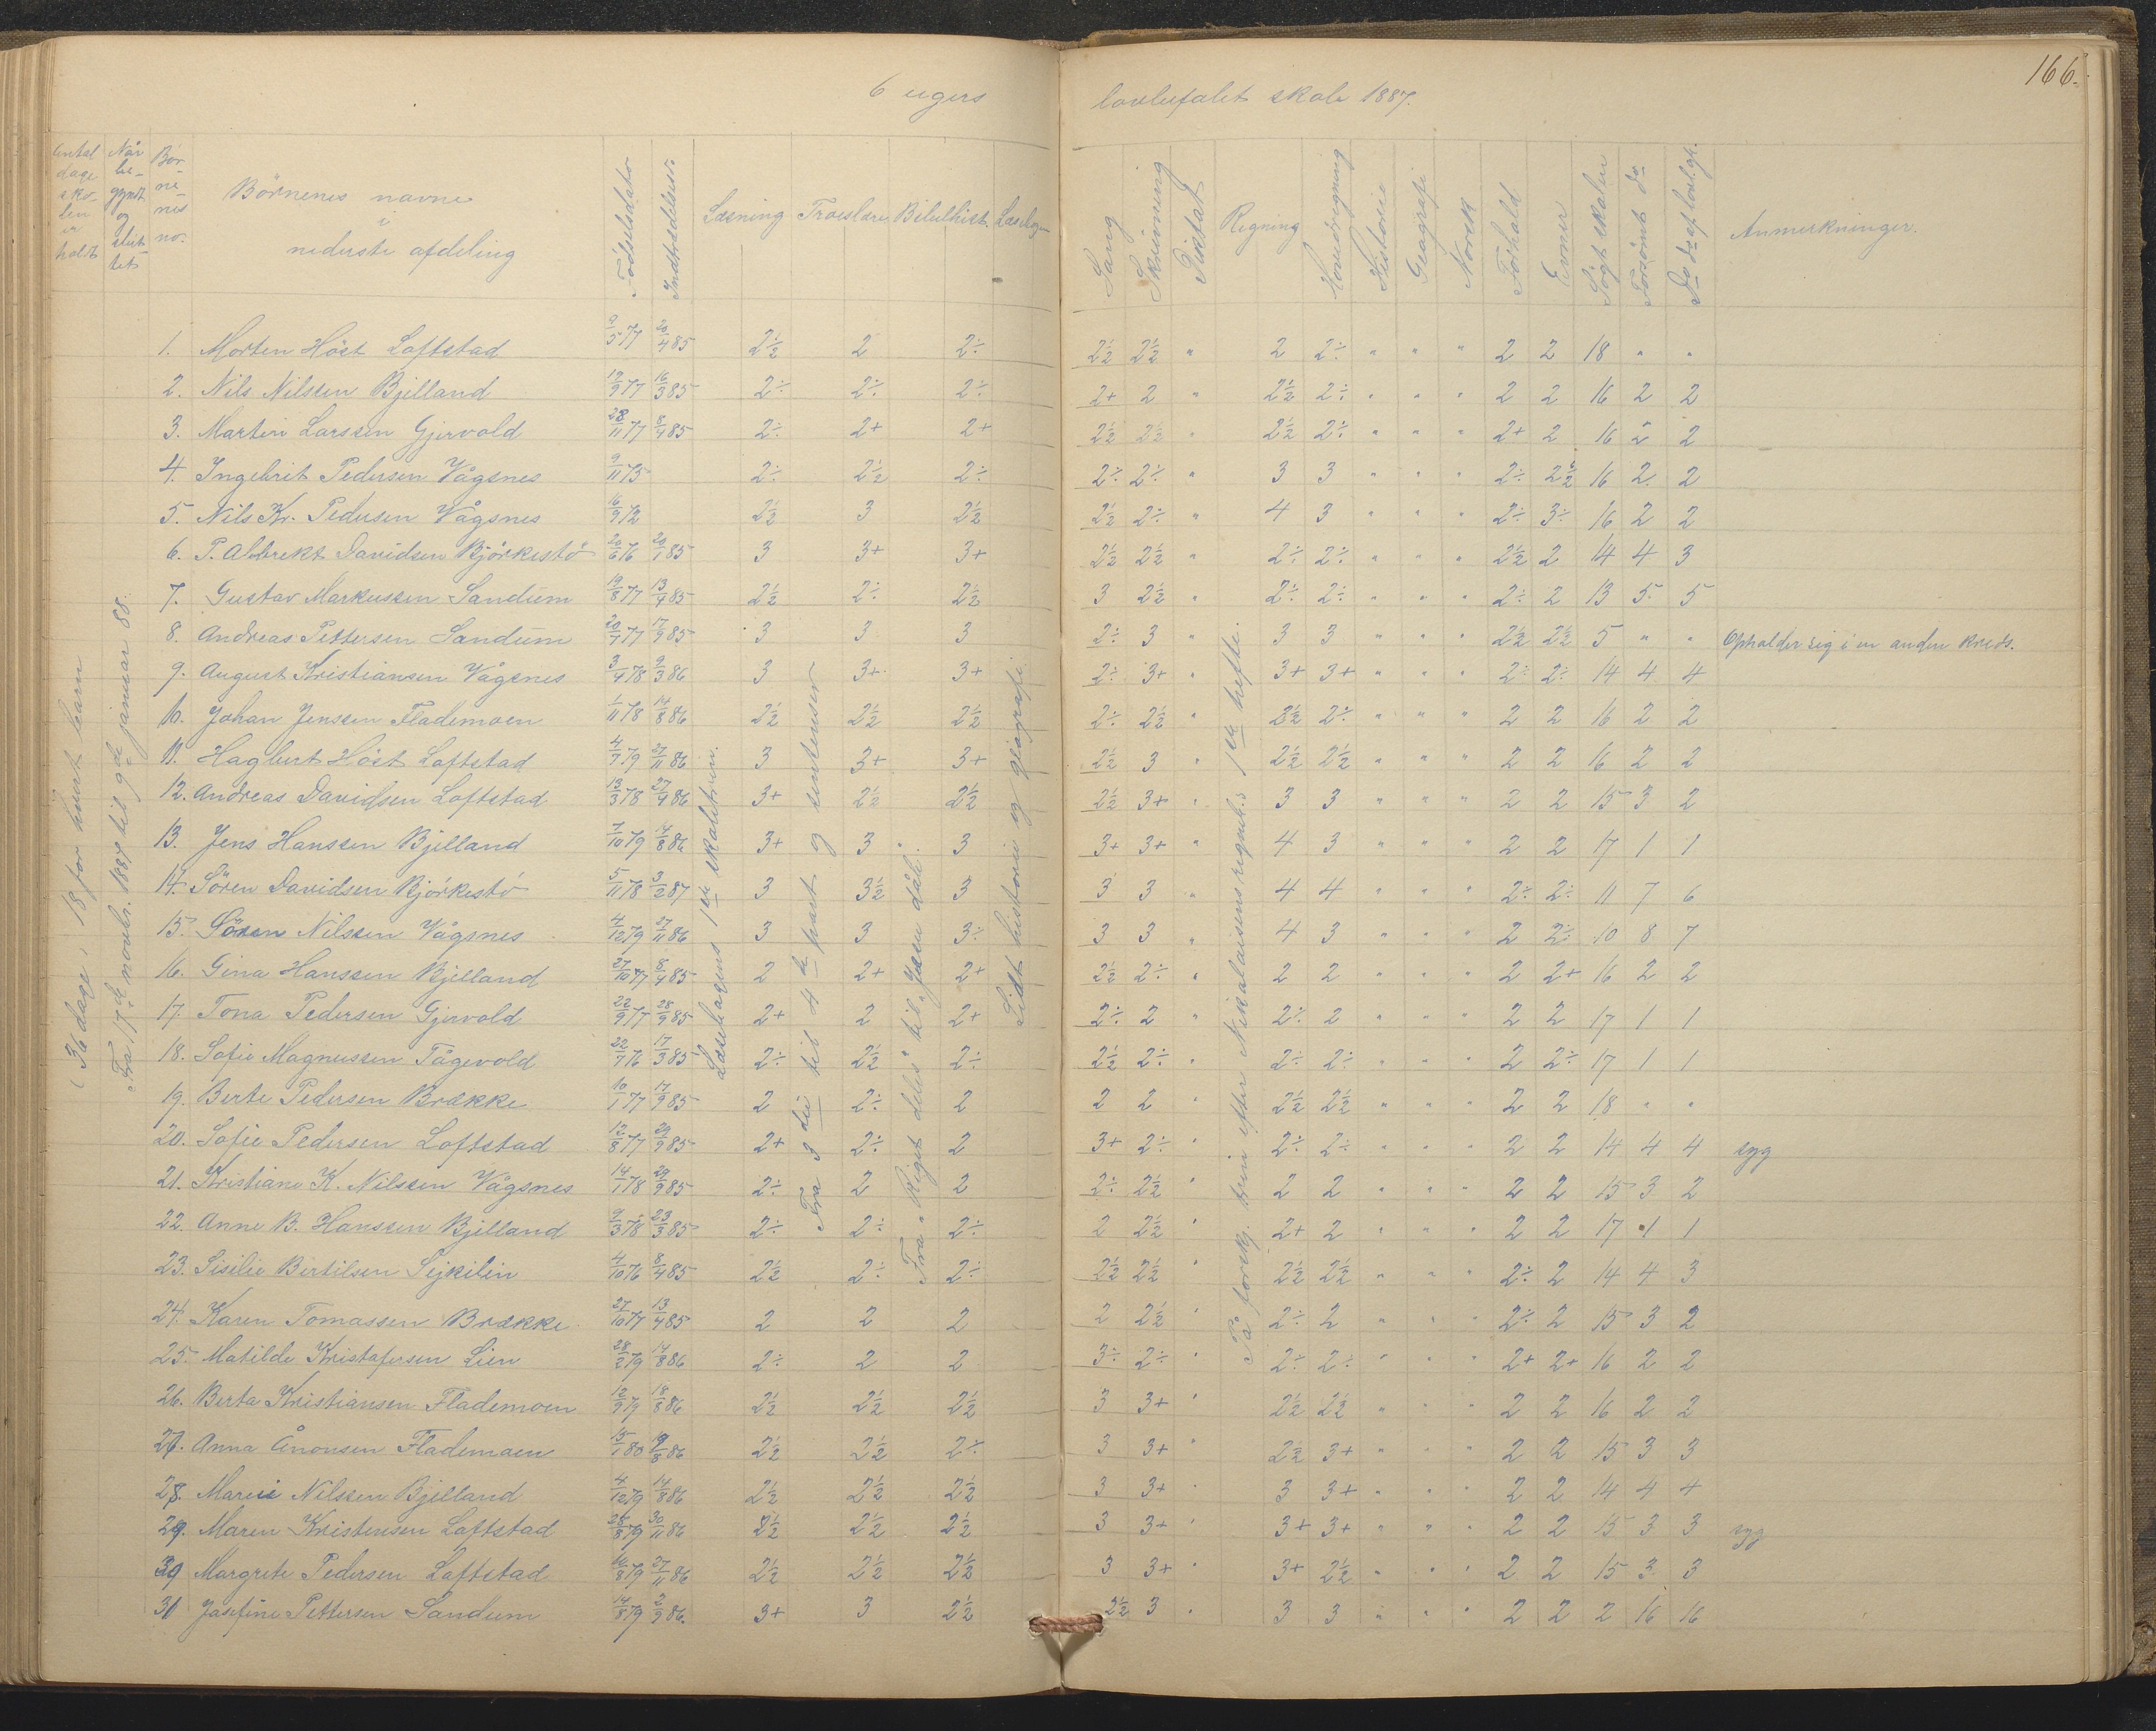 166.
6 ugers lovbefalet skole 1887.
Antal dage skolen er holdt
Når begyndt og sluttet
Börnenes no.
Börnenes navne i nederste afdeling
Födselsdato
Indtrædelses.
Læsning
Troeslære
Bibelhist.
Læsebog
Sang
Skrivning
Diktat
Regning
Hovedregning
Historie
Geografi
Norsk
Forhold
Evner
Sögt skolen
Forsömt do
Do do af lovl. gr.
Anmerkninger.
36 dage, 18 for hvert barn
Fra 17de novbr. 1887 til 9de januar 88.
Læsebogens 1ste skoletrin.
Fra 3die til 4de part og sentenser
Fra "Riget deles" til "Jesu dåb".
Lidt historie og geografi
På forskj. trin efter Nikolaisens regneb.s 1ste hefte.
1. Morten Höst Loftstad 9/5 77 20/4 85 2½ 2 2÷ 2½ 2½ " 2 2÷ " " " 2 2 18 " "
2. Nils Nilssen Bjelland 12/9 77 16/3 85 2÷ 2÷ 2÷ 2+ 2 " 2½ 2÷ " " " 2 2 16 2 2
3. Martin Larssen Gjervold 28/11 77 8/4 85 2÷ 2+ 2+ 2½ 2½ " 2½ 2÷ " " " 2+ 2 16 2 2
4. Ingebrit Pedersen Vågsnes 9/11 75 2÷ 2½ 2÷ 2÷ 2÷ " 3 3 " " " 2÷ 2½ 16 2 2
5. Nils Kr. Pedersen Vågsnes 16/9 72 2½ 3 2½ 2½ 2÷ " 4 3 " " " 2÷ 3÷ 16 2 2
6. P. Albrekt Davidsen Björkestö 20/6 76 20/1 85 3 3+ 3+ 2½ 2½ " 2÷ 2÷ " " " 2½ 2 14 4 3
7. Gustav Markussen Sandum 19/8 77 13/4 85 2½ 2÷ 2½ 3 2½ " 2÷ 2÷ " " " 2÷ 2 13 5 5
8. Andreas Pettersen Sandum 20/7 77 17/9 85 3 3 3 2÷ 3 " 3 3 " " " 2½ 2½ 5 " " Opholder sig i en anden kreds.
9. August Kristiansen Vågsnes 3/4 78 9/3 86 3 3+ 3+ 2÷ 3+ " 3+ 3+ " " " 2÷ 2÷ 14 4 4
10. Johan Jenssen Flademoen 1/11 78 14/8 86 2½ 2½ 2½ 2÷ 2½ " 2½ 2÷ " " " 2 2 16 2 2
11. Hagbert Höst Loftstad 4/7 79 27/11 86 3 3+ 3+ 2½ 3 " 2½ 2½ " " " 2 2 16 2 2
12. Andreas Davidsen Loftstad 13/3 78 27/9 86 3+ 2½ 2½ 2½ 3+ " 3 3 " " " 2 2 15 3 2
13. Jens Hanssen Bjelland 7/10 79 14/8 86 3+ 3 3 3+ 3+ " 4 3 " " " 2 2 17 1 1
14. Sören Davidsen Björkestö 5/11 78 3/2 87 3 3½ 3 3 3 " 4 4 " " " 2÷ 2÷ 11 7 6
15. Sören Nilssen Vågsnes 4/12 79 27/11 86 3 3 3÷ 3 3 " 4 3 " " " 2 2÷ 10 8 7
16. Gina Hanssen Bjelland 27/10 77 8/4 85 2 2+ 2+ 2½ 2÷ " 2 2 " " " 2 2+ 16 2 2
17. Tona Pedersen Gjervold 22/9 77 28/9 85 2+ 2 2+ 2÷ 2 " 2÷ 2 " " " 2 2 17 1 1
18. Sofie Magnussen Tågevold 22/7 76 17/3 85 2÷ 2½ 2÷ 2½ 2÷ " 2÷ 2÷ " " " 2 2÷ 17 1 1
19. Berte Pedersen Brække 10/1 77 17/9 85 2 2÷ 2 2 2 " 2½ 2½ " " " 2 2 18 " "
20. Sofie Pedersen Loftstad 12/8 77 29/9 85 2+ 2÷ 2 3+ 2÷ " 2÷ 2÷ " " " 2 2 14 4 4 syg
21. Kristiane K. Nilssen Vågsnes 14/1 78 29/9 85 2÷ 2 2 2÷ 2½ " 2 2 " " " 2 2 15 3 2
22. Anne B. Hanssen Bjelland 9/3 78 23/3 85 2÷ 2÷ 2÷ 2 2½ " 2+ 2 " " " 2 2 17 1 1
23. Siselie Bertilsen Sejkilin 4/10 76 8/4 85 2½ 2÷ 2÷ 2½ 2½ " 2½ 2½ " " " 2÷ 2 14 4 3
24. Karen Tomassen Brække 27/10 77 13/4 85 2 2 2 2 2½ " 2÷ 2 " " " 2÷ 2 15 3 2
25. Matilde Kristofersen Lien 28/2 79 14/8 86 2÷ 2 2 3÷ 2÷ " 2÷ 2÷ " " " 2+ 2+ 16 2 2
26. Berta Kristiansen Flademoen 12/9 79 18/8 86 2½ 2½ 2½ 3 3+ " 2½ 2½ " " " 2 2 16 2 2
27. Anna Ånonsen Flademoen 15/1 80 9/8 86 2½ 2½ 2÷ 3 3+ " 2½ 3+ " " " 2 2 15 3 3
28. Marie Nilssen Bjelland 4/12 79 14/8 86 2½ 2½ 2½ 3 3+ " 3 3+ " " " 2 2 14 4 4
29. Maren Kristensen Loftstad 28/8 79 30/11 86 2½ 2½ 2½ 3 3+ " 3+ 3+ " " " 2 2 15 3 3 syg
30 Margrete Pedersen Loftstad 16/8 79 27/11 86 2½ 2½ 2½ 3 3+ " 3+ 2½ " " " 2 2 15 3 3
31 Josefine Pettersen Sandum 14/8 79 2/9 86. 3+ 3 2½ 2½ 3 " 3 3 " " " 2 2 2 16 16